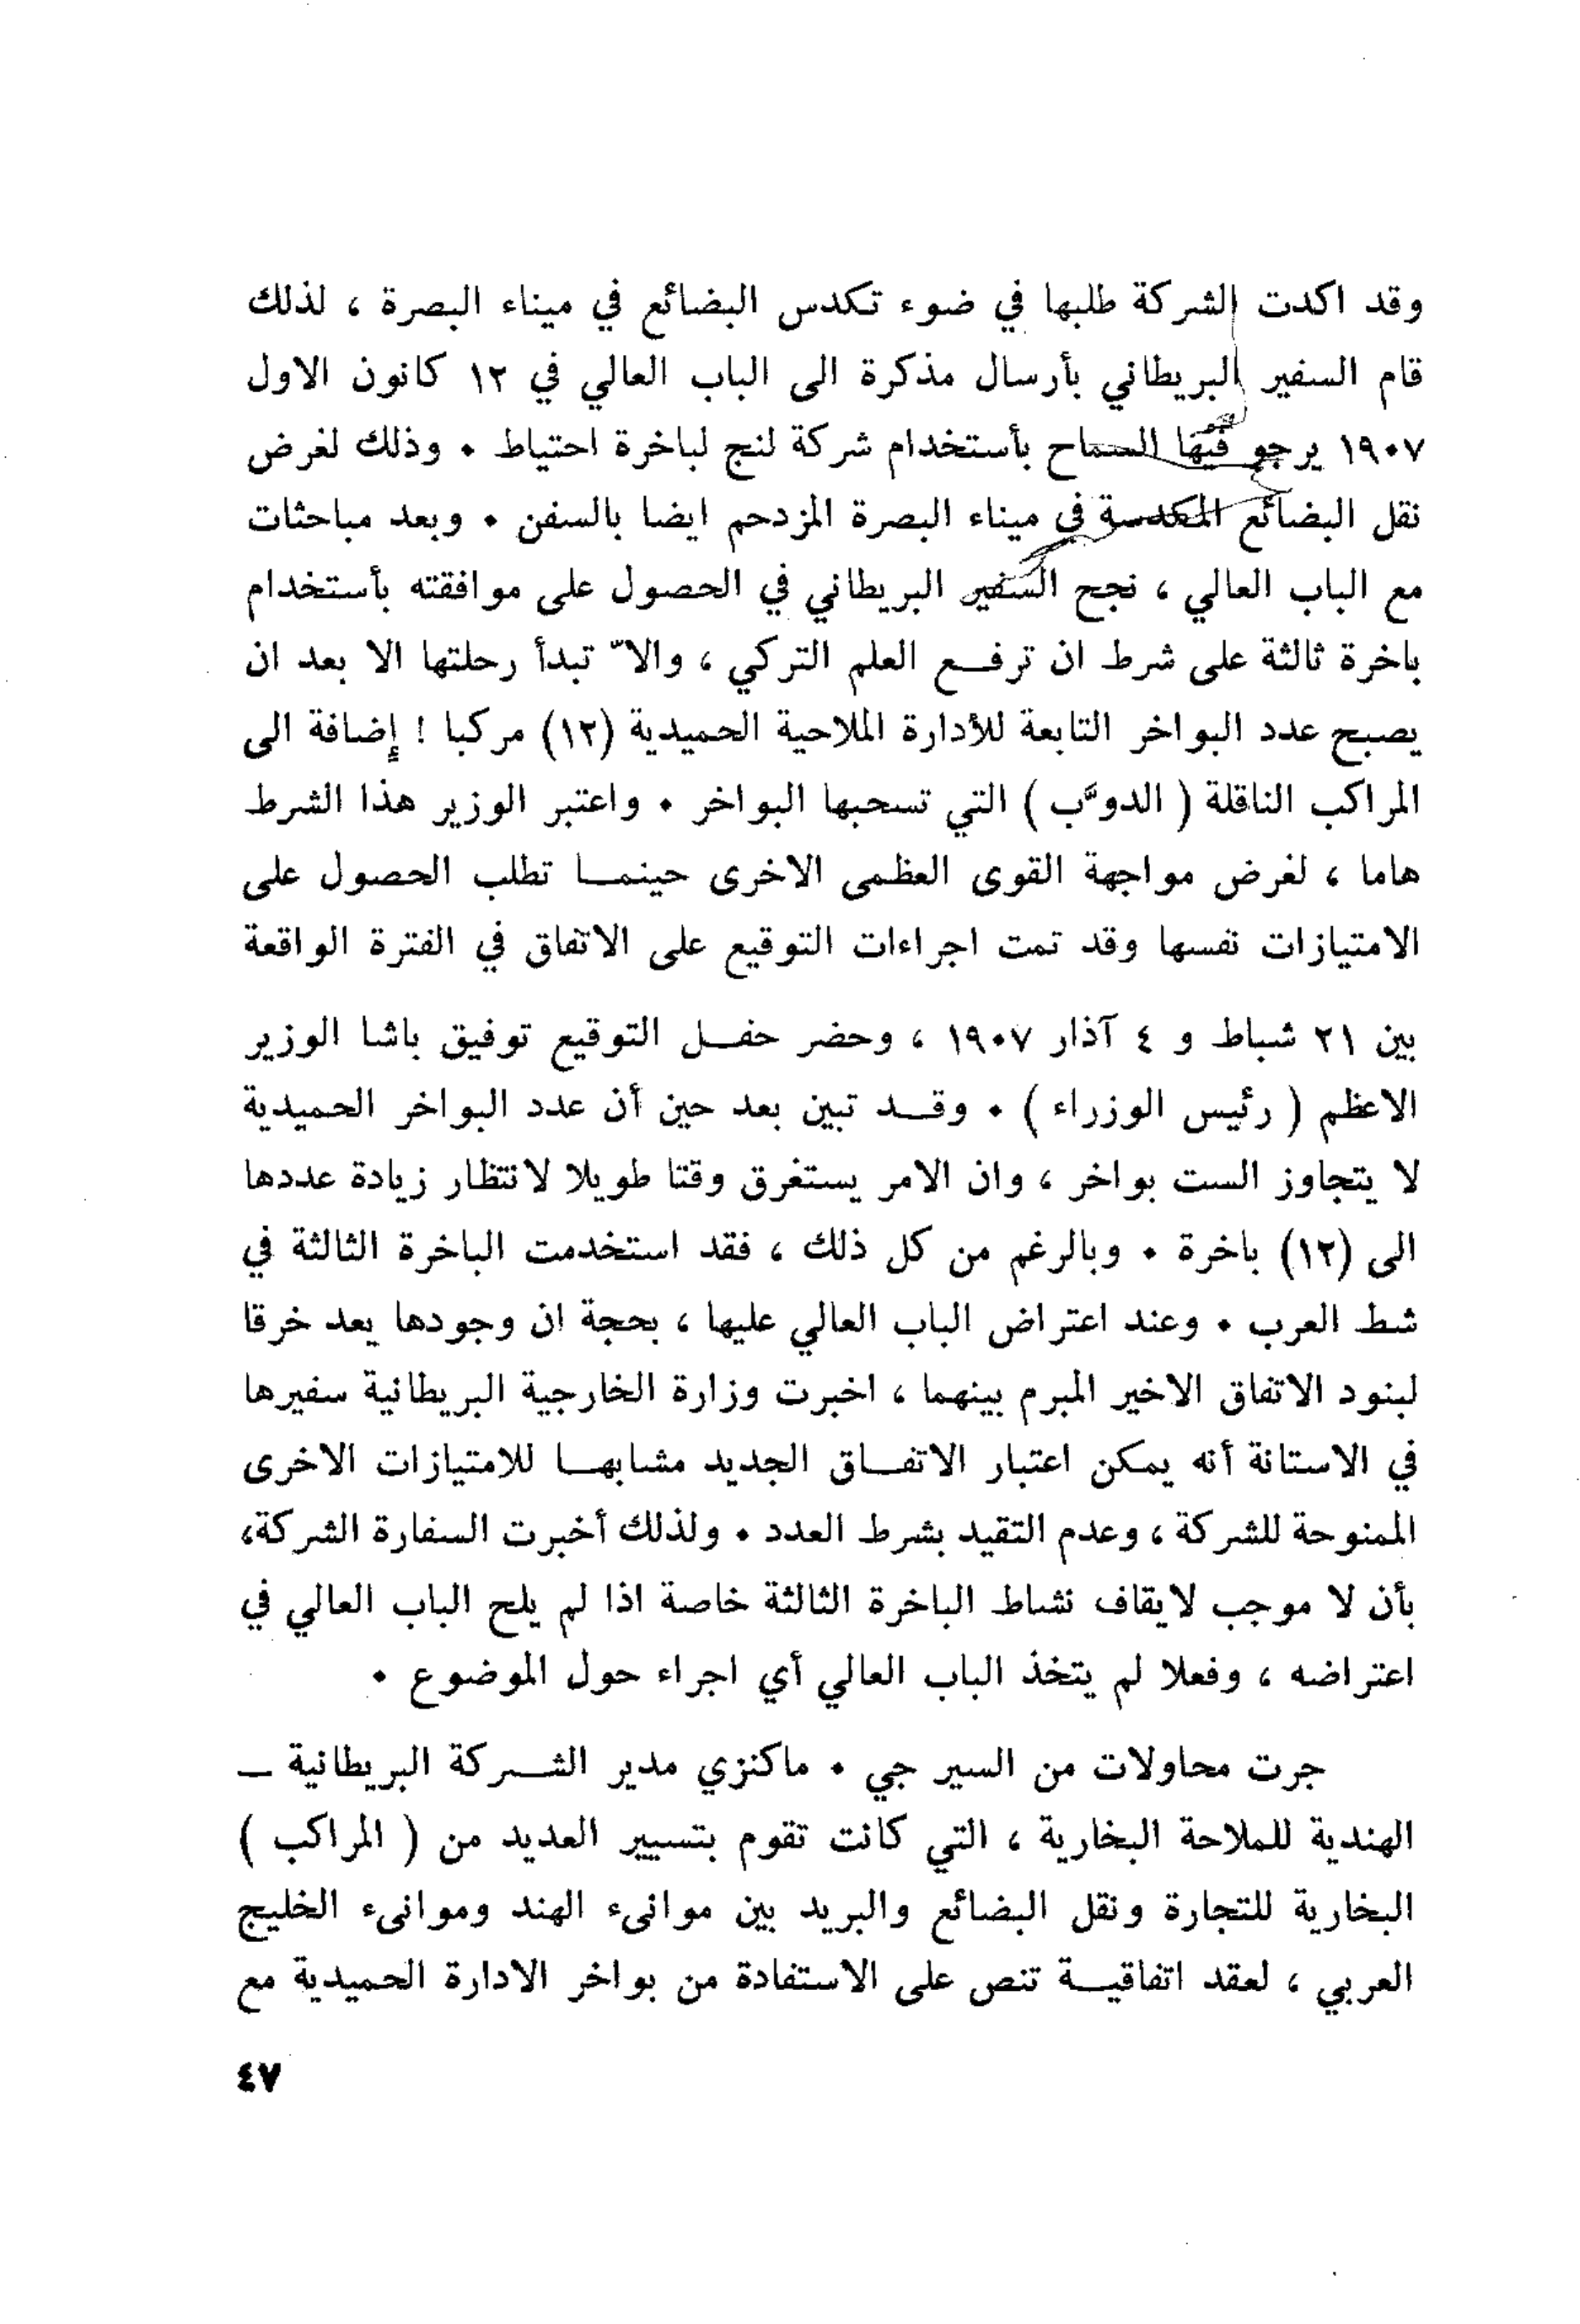 وقد اكدت الشركة طلبها في ضوء تكدس البضائع في ميناء البصرة ، لذلك
قام السفير البريطاني بأرسال مذكرة الى الباب العالي في ١٢ كانون الاول
١٩٠٧ يرجو فيها السماح بأستخدام شركة لنج لباخرة احتياط ٠ وذلك لغرض
نقل البضائع المكدسة في ميناء البصرة المزدحم ايضا بالسفن ٠ وبعد مباحثات
مع الباب العالي ، نجح السفير البريطاني في الحصول على موافقته بأستخدام
باخرة ثالثة على شرط ان ترفــع العلم التركي ، والاّ تبدأ رحلتها الا بعد ان
يصبح عدد البواخر التابعة للأدارة الملاحية الحميدية (١٢) مركبا ! إضافة الى
المراكب الناقلة ( الدوّب ) التي تسحبها البواخر ٠ واعتبر الوزير هذا الشرط
هاما ، لغرض مواجهة القوى العظمى الاخرى حينمــا تطلب الحصول على
الامتيازات نفسها وقد تمت اجراءات التوقيع على الاتفاق في الفترة الواقعة
بين ٢١ شباط و ٤ آذار ١٩٠٧ ، وحضر حفــل التوقيع توفيق باشا الوزير
الاعظم ( رئيس الوزراء ) ٠ وقــد تبين بعد حين أن عدد البواخر الحميدية
لا يتجاوز الست بواخر ، وان الامر يستغرق وقتا طويلا لانتظار زيادة عددها
الى (١٢) باخرة ٠ وبالرغم من كل ذلك ، فقد استخدمت الباخرة الثالثة في
شط العرب ٠ وعند اعتراض الباب العالي عليها ، بحجة ان وجودها يعد خرقا
لبنود الاتفاق الاخير المبرم بينهما ، اخبرت وزارة الخارجية البريطانية سفيرها
في الاستانة أنه يمكن اعتبار الاتفــاق الجديد مشابهــا للامتيازات الاخرى
الممنوحة للشركة ، وعدم التقيد بشرط العدد ٠ ولذلك أخبرت السفارة الشركة،
بأن لا موجب لايقاف نشاط الباخرة الثالثة خاصة اذا لم يلح الباب العالي في
اعتراضه ، وفعلا لم يتخذ الباب العالي أي اجراء حول الموضوع ٠
جرت محاولات من السير جي ٠ ماكنزي مدير الشــركة البريطانية ــ
الهندية للملاحة البخارية ، التي كانت تقوم بتسيير العديد من ( المراكب )
البخارية للتجارة ونقل البضائع والبريد بين موانىء الهند وموانىء الخليج
العربي ، لعقد اتفاقيــة تنص على الاستفادة من بواخر الادارة الحميدية مع
٤٧